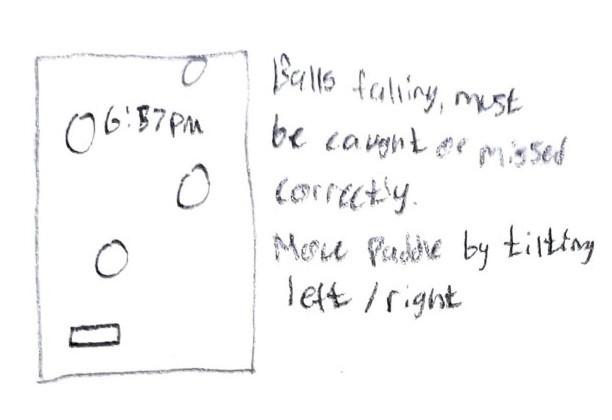 6:37pm
Balls falling, must
be caught or missed
correctly.
Move Paddle by tilting
left / right